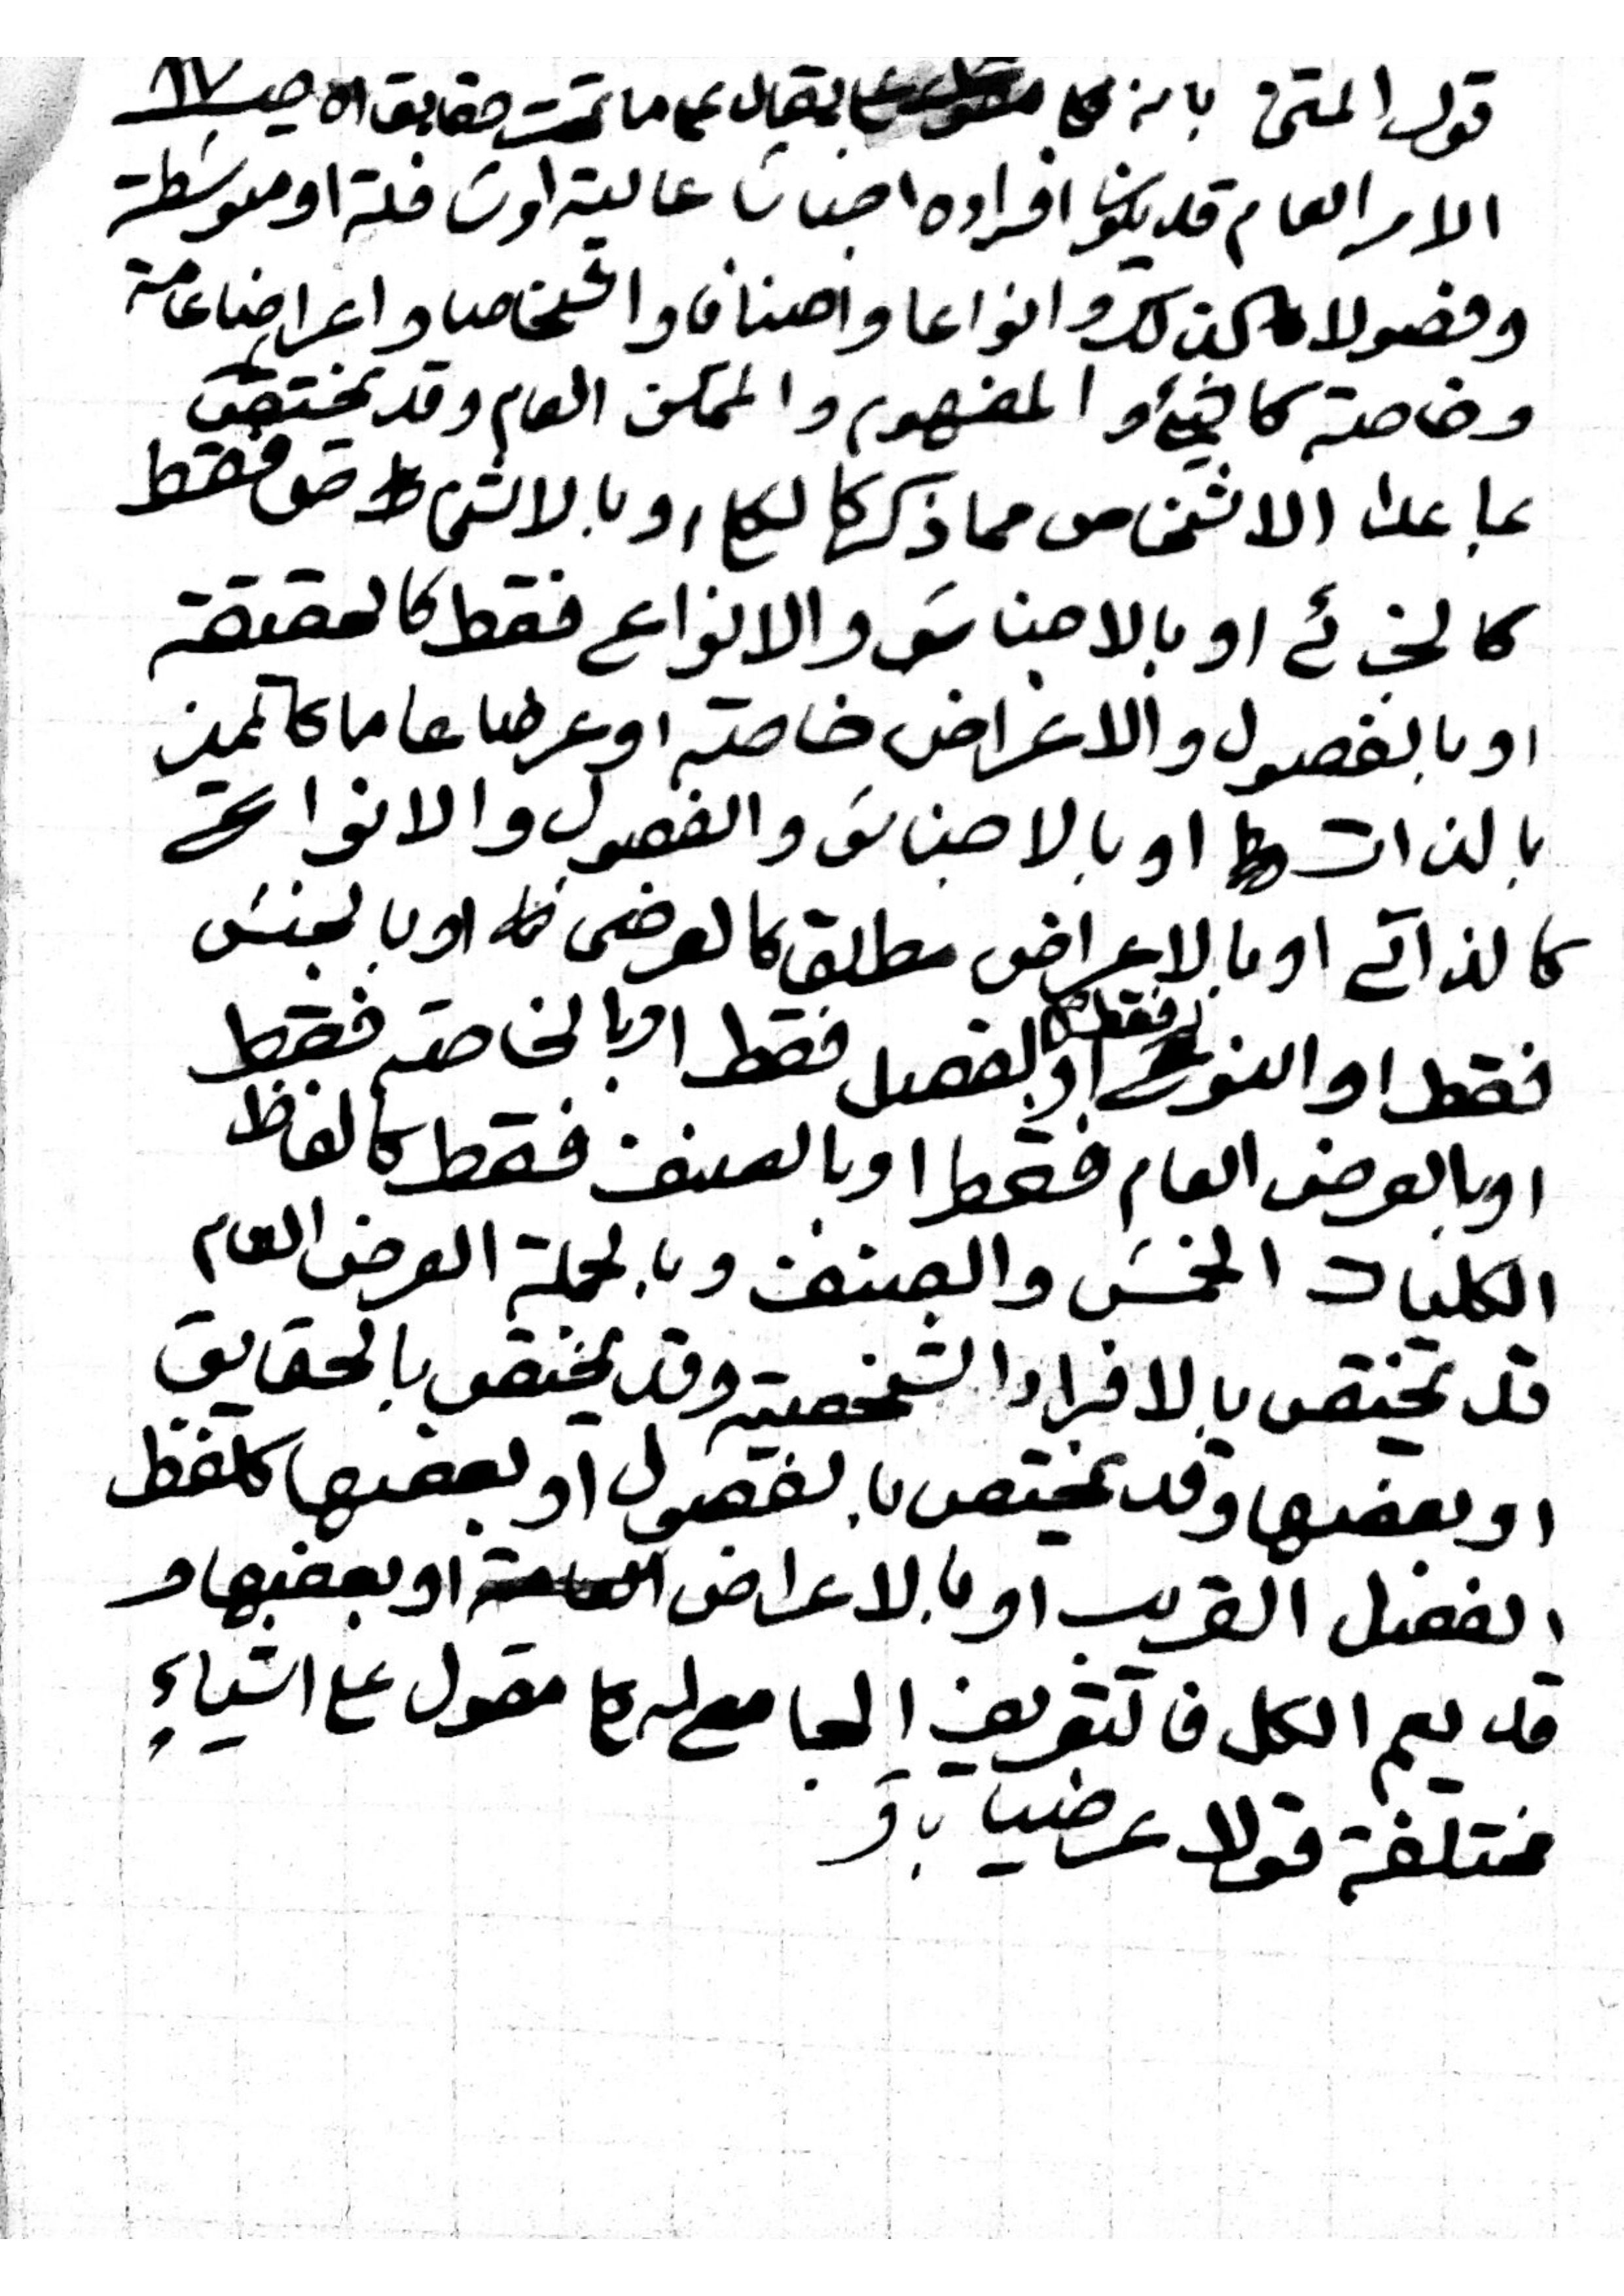 قول المتن بانه كلي يقال على ما تحت حقايق اه صـ ٦٧
الامر العام قد يكون افراده اجناسا عالية او سافلة او متوسطة
وفصولا كذلك وانواعا واصنافا واشخاصا واعراضا عامة
وخاصة كالشيئ و المفهوم والممكن العام وقد يختص
بما عدا الاشخاص مما ذكر كالكلي وبالاشخاص فقط
كالجزئے او بالاجناس والانواع فقط كالحقيقة
او بالفصول والاعراض خاصة او عرضا عاما كالمميز
بالذات او بالاجناس والفصول والانواع
كالذاتے او بالاعراض مطلقا كالعرضى او بالجنس
فقط او النوع فقط او بالفصل فقط او بالخاصة فقط
او بالعرض العام فقط او بالصنف فقط كالفاظ
الكليات الخمس والصنف وبالجملة العرض العام
قد يختص بالافراد الشخصية وقد يختص بالحقايق
او بعضها وقد يختص بالفصول او بعضها كلفظ
الفصل القريب او بالاعراض العامة او بعضها و
قد يعم الكل فالتعريف الجامع له كلي مقول على اشياء
مختلفة قولا عرضيا